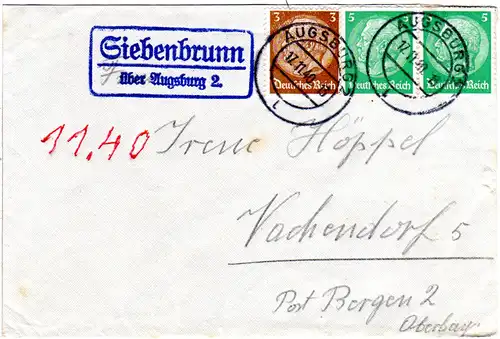 Siebenbrunn
über Augsburg 2.
3 3
Deutsches Reich
5 5
Deutsches Reich
5
Deutsches Reich
AUGSBURG
17.11.40
AUGSBURG
11.40
Irene Höppel
Vachendorf 5
Post Bergen 2
Oberbay